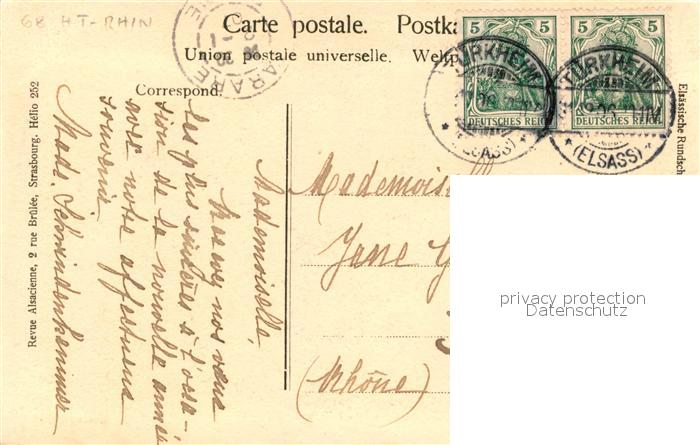 68 HT-RHIN
Carte postale. Postka
Union postale universelle. Weltp
Correspond.
5 5
5 5
DEUTSCHES REICH
DEUTSCHES REICH
TÜRKHEIM
(ELSASS)
TÜRKHEIM
(ELSASS)
TARARE
Revue Alsacienne, 2 rue Brûlée, Strasbourg. Hélio 252
Elsässische Rundsch
Mademoiselle,
Recevez nos vœux
les plus sincères à l'occa-
sion de la nouvelle année
avec notre affectueux
souvenir
Made. Schwindenhammer
Mademoise
Jane G
(Rhône)
privacy protection
Datenschutz